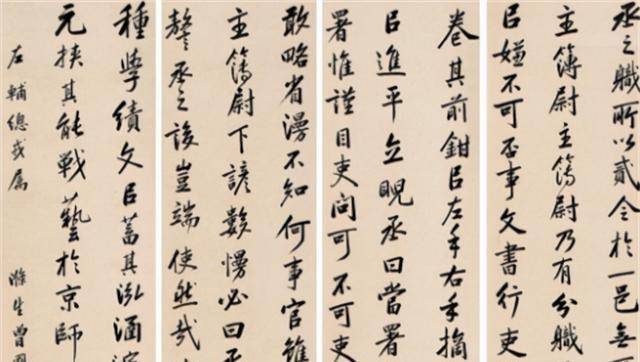 丞之職所以貳令於一邑無
主簿尉主簿尉乃有分職
㠯嫌不可否事文書行吏
卷其前鉗㠯左手右手摘
㠯進平立睨丞曰當署
署惟謹目吏問可不可吏
敢略省漫不知何事官雖
主簿尉下諺數慢必曰丞
謷丞之設豈端使然哉
種學績文㠯蓄其泓涵演
元挾其能戰藝於京師
左輔總戎屬
滌生曾國